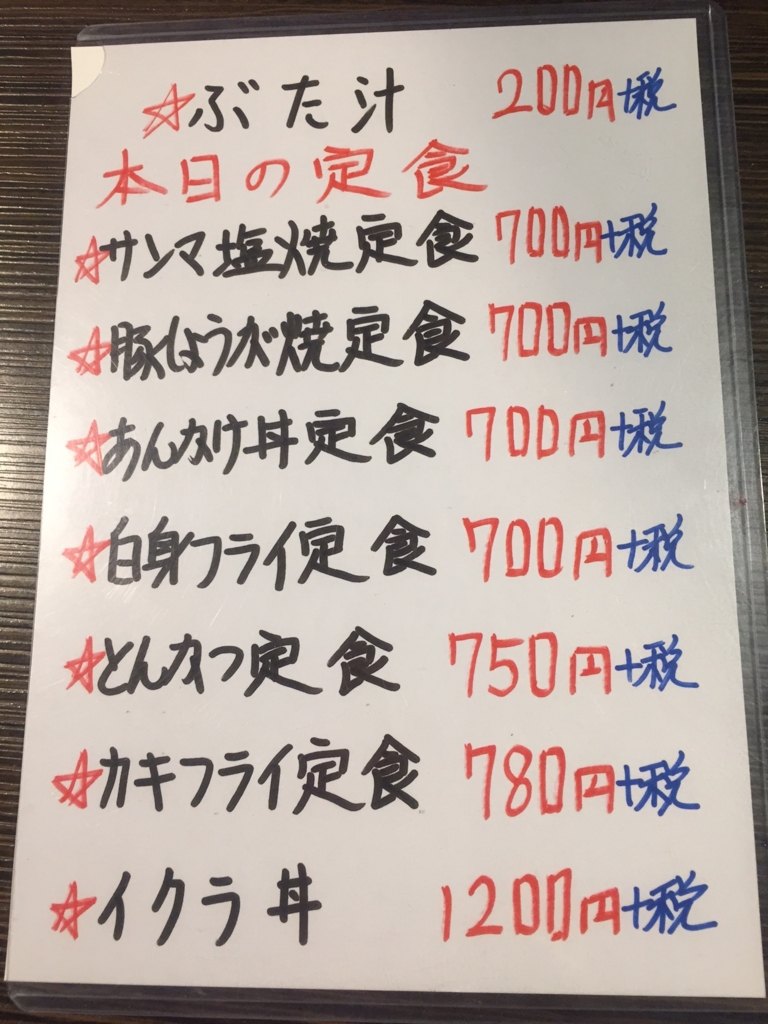 ☆ぶた汁 200円+税
本日の定食
☆サンマ塩焼定食 700円+税
☆豚しょうが焼定食 700円+税
☆あんかけ丼定食 700円+税
☆白身フライ定食 700円+税
☆とんかつ定食 750円+税
☆カキフライ定食 780円+税
☆イクラ丼 1200円+税